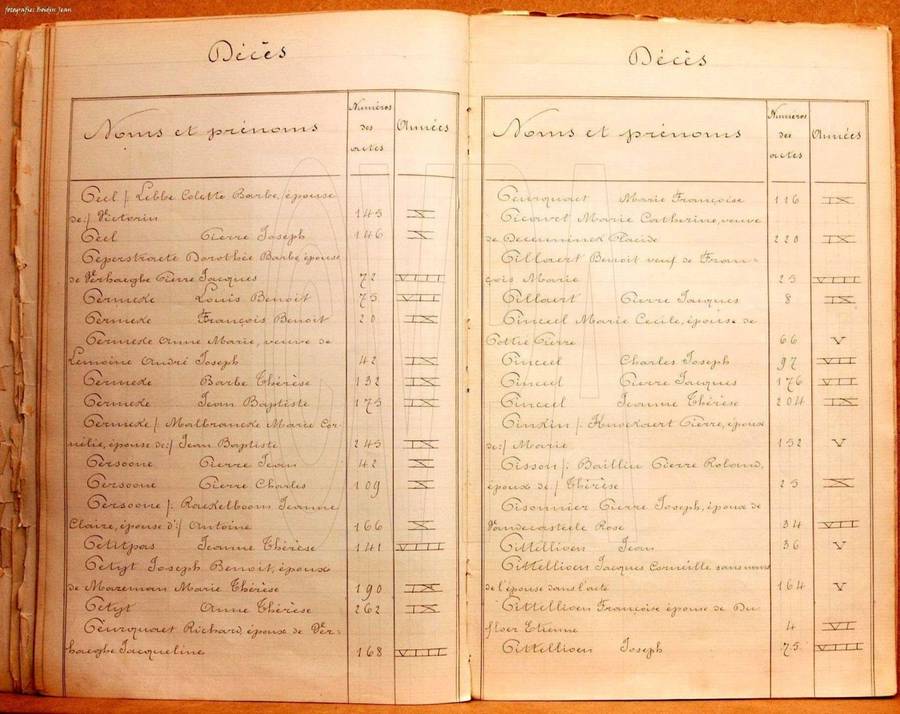 fotografie: Boidin Jean
Décès
Noms et prénoms
Numéros des actes
Années
Peel /: Libbe Colette Barbe, épouse
de:/ Victorin 145 X
Peel Pierre Joseph 146 X
Peperstraete Dorothée Barbe, épouse
de Verhaeghe Pierre Jacques 72 VIII
Permeke Louis Benoit 75 VII
Permeke François Benoit 20 IX
Permeke Anne Marie, veuve de
Lemoine André Joseph 42 IX
Permeke Barbe Thérèse 132 IX
Permeke Jean Baptiste 175 IX
Permeke /: Malbrancke Marie Cor-
nélie, épouse de:/ Jean Baptiste 245 IX
Persoone Pierre Jean 42 X
Persoone Pierre Charles 109 X
Persoone /: Roekelboom Jeanne
Claire, épouse d':/ Antoine 166 X
Petitpas Jeanne Thérèse 141 VIII
Petyt Joseph Benoit, époux
de Mazeman Marie Thérèse 190 IX
Petyt Anne Thérèse 262 IX
Peurquaet Richard, époux de Ver-
haeghe Jacqueline 168 VIII
Décès
Noms et prénoms
Numéros des actes
Années
Peurquaet Marie Françoise 116 IX
Picavet Marie Catherine, veuve
de Deceuninck Placide 220 IX
Pillaert Benoit veuf de Fran-
çois Marie 25 VIII
Pillaert Pierre Jacques 8 IX
Pinceel Marie Cecile, épouse de
Pottie Pierre 66 V
Pinceel Charles Joseph 97 VII
Pinceel Pierre Jacques 176 VII
Pinceel Jeanne Thérèse 204 IX
Pinkin /: Knockaert Pierre, époux
de:/ Marie 152 V
Pisson /: Baillieu Pierre Roland,
époux de:/ Thérèse 25 X
Pisonnier Pierre Joseph, époux de
Vandecasteele Rose 34 VII
Pittellioen Jean 36 V
Pittellioen Jacques Corneille sans noms
de l'épouse dans l'acte 164 V
Pittellioen Françoise épouse de Du-
floer Etienne 4 VI
Pittellioen Joseph 75 VIII